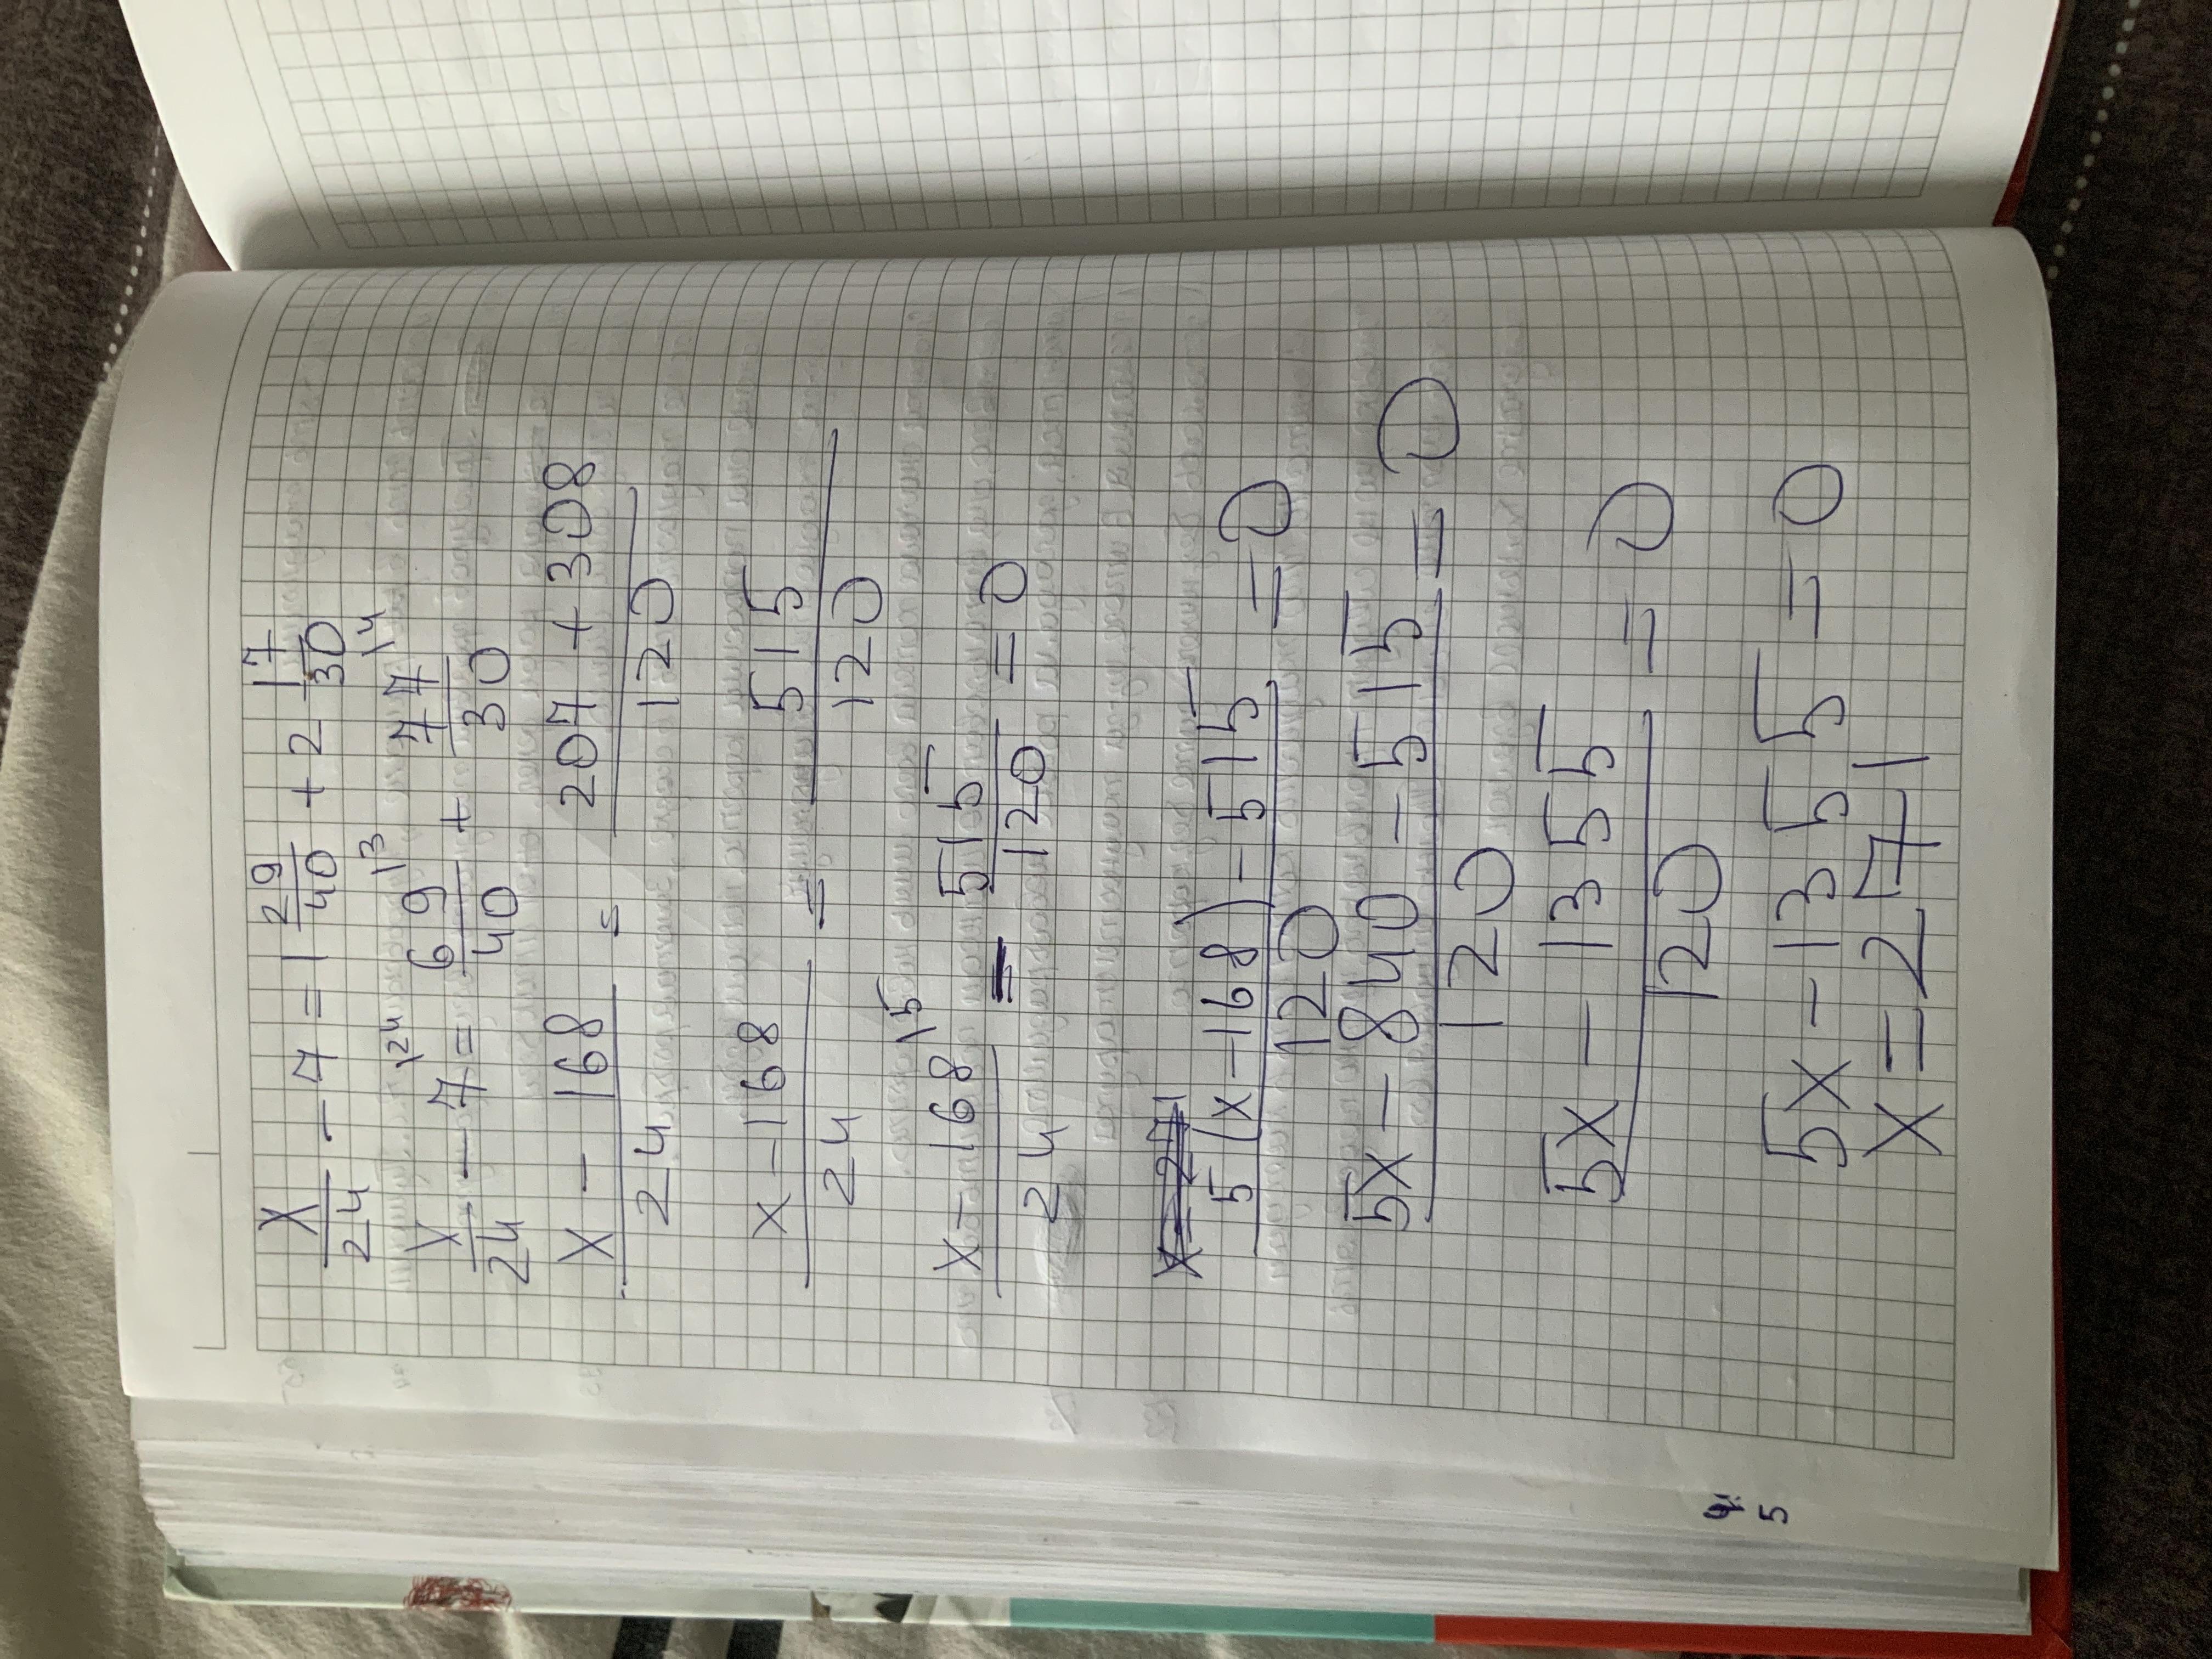 x/24 - 7 = 1 29/40 + 2 17/30
x/24 - 7\24 = 69\3/40 + 77\4/30
x - 168/24 = 207 + 308/120
x - 168/24 = 515/120
x - 168\5/24 = 515/120 = 0
5(x - 168) - 515/120 = 0
5x - 840 - 515/120 = 0
5x - 1355/120 = 0
5x - 1355 = 0
x = 271